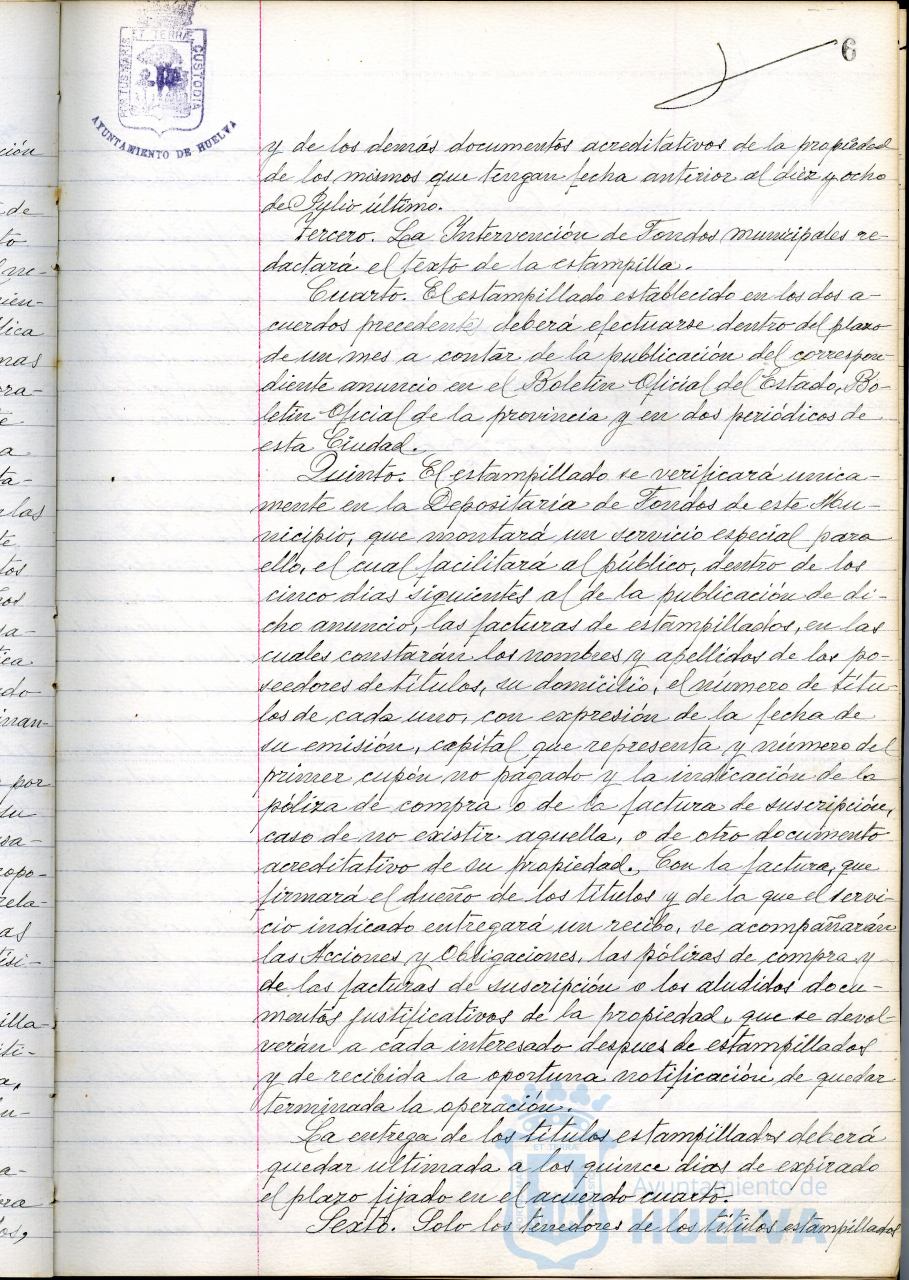 6
PORTUS MARIS ET TERRAE CUSTODIA
AYUNTAMIENTO DE HUELVA
y de los demás documentos acreditativos de la propiedad
de los mismos que tengan fecha anterior al diez y ocho
de Julio último.
Tercero. La Intervención de Fondos municipales re-
dactará el texto de la estampilla.
Cuarto. El estampillado establecido en los dos a-
cuerdos precedentes deberá efectuarse dentro del plazo
de un mes a contar de la publicación del correspon-
diente anuncio en el Boletín Oficial del Estado, Bo-
letín Oficial de la provincia y en dos periódicos de
esta Ciudad.
Quinto. El estampillado se verificará unica-
mente en la Depositaría de Fondos de este Mu-
nicipio, que montará un servicio especial para
ello, el cual facilitará al público, dentro de los
cinco dias siguientes al de la publicación de di-
cho anuncio, las facturas de estampillados, en las
cuales constarán los nombres y apellidos de los po-
seedores de títulos, su domicilio, el número de títu-
los de cada uno, con expresión de la fecha de
su emisión, capital que representa y número del
primer cupón no pagado y la indicación de la
póliza de compra o de la factura de suscripción,
caso de no existir aquella, o de otro documento
acreditativo de su propiedad. Con la factura, que
firmará el dueño de los títulos y de la que el servi-
cio indicado entregará un recibo, se acompañarán
las Acciones y Obligaciones, las pólizas de compra y
de las facturas de suscripción o los aludidos docu-
mentos justificativos de la propiedad, que se devol-
verán a cada interesado despues de estampillados
y de recibida la oportuna notificación de quedar
terminada la operación.
La entrega de los títulos estampillados deberá
quedar ultimada a los quince dias de expirado
el plazo fijado en el acuerdo cuarto.
Sexto. Solo los tenedores de los títulos estampillados
ET TERRAE
Ayuntamiento de
HUELVA
ción
de
to
ne-
ien-
lica
nas
ra-
te
a
ta-
las
te
tos
nos
sa-
tica
ado
inan-
por
su
esa-
ropo-
rela-
as
isi-
illa-
iti-
a,
lu-
a-
ora
los,